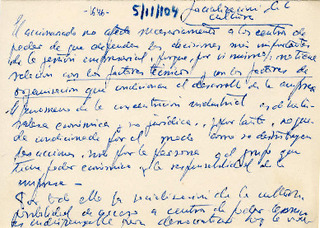 -646- 5/11/104 Socialización de la
cultura
El accionariado no afecta necesariamente a los centros de
poder de que dependen las decisiones más importantes
de la gestión empresarial, porque, por sí mismo, no tiene
relación con los factores técnicos y con los factores de
organización que condicionan el desarrollo de la empresa
El fenómeno de la concentración industrial es de natu-
raleza económica y no jurídica, por tanto, no que-
da condicionado por el modo como se distribuyen
las acciones, sino por la persona o el grupo que
tiene poder económico y la responsabilidad de la
empresa -
Por todo ello la socialización de la cultura,
posibilidad de acceso a centros de poder
es indispensable para democratizar hoy la